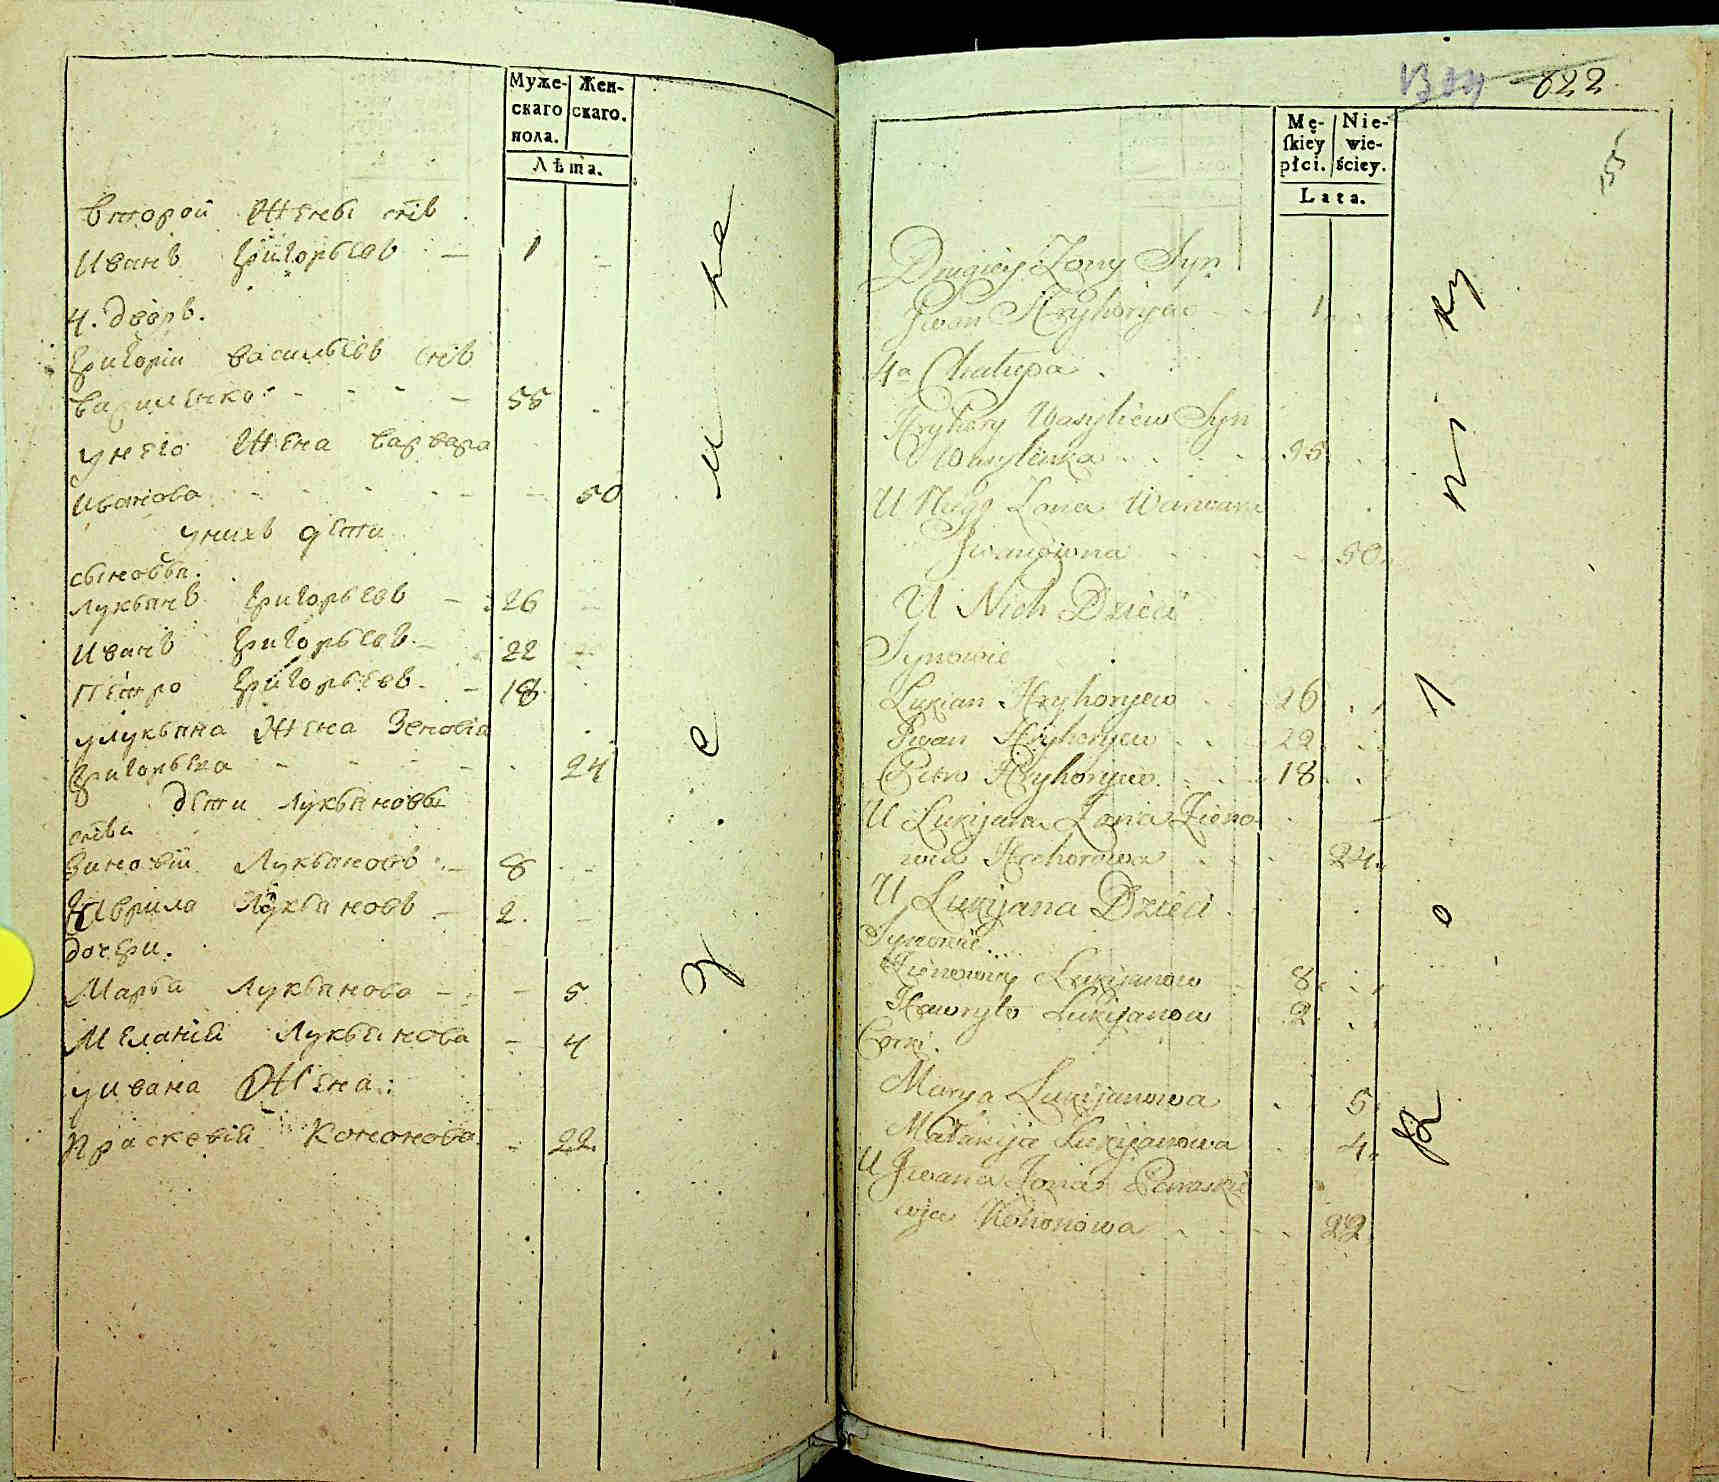 Муже-
скаго
пола.
Жен-
скаго.
Лѣта.
Второй жены снъ
Иванъ Григорьевъ — 1 -
4. дворъ.
Григорiй Васильевъ снъ
Василенко - - - — 55 -
у него жена Варвара
Иванова - - - - - 50
у нихъ дети
сыновья.
Лукьянъ Григорьевъ — 26 -
Иванъ Григорьевъ — 22 -
Петро Григорьевъ - 18
у Лукьяна жена Зеновiя
Григорьева - - - - 24
дети Лукьяновы
снвя
Зиновiй Лукьяновъ — 8 -
Гаврила Лукьяновъ — 2. -
дочери.
Марья Лукьянова — - 5
Меланiя Лукьянова - 4
у Ивана жена:
Праскевiя Кононова - 22.
622
Mę-
skiey
płci.
Nie-
wie-
ściey.
Lata.
Drugiey Żony Syn
Jwan Hryhoryew - - 1
4a Chałupa
Hryhory Wasyliew Syn
Wasylenka - - - 55
U Niego Żona Warwara
Jwanowna - - - 50
U Nich Dzieci
Synowie
Lukian Hryhoryew - 26
Jwan Hryhoryew - - 22
Petro Hryhoryew - - 18
U Lukijana Żona Zieno
wia Hrehorowa - - - 24
U Lukijana Dzieci
Synowie
Zienowiy Lukijanow - 8
Hawryło Lukijanow - 2
Corki.
Marya Lukijanowa - 5
Małanija Lukijanowa - 4
U Jwana Żona Paraskie
wja Kononowa - - - 22